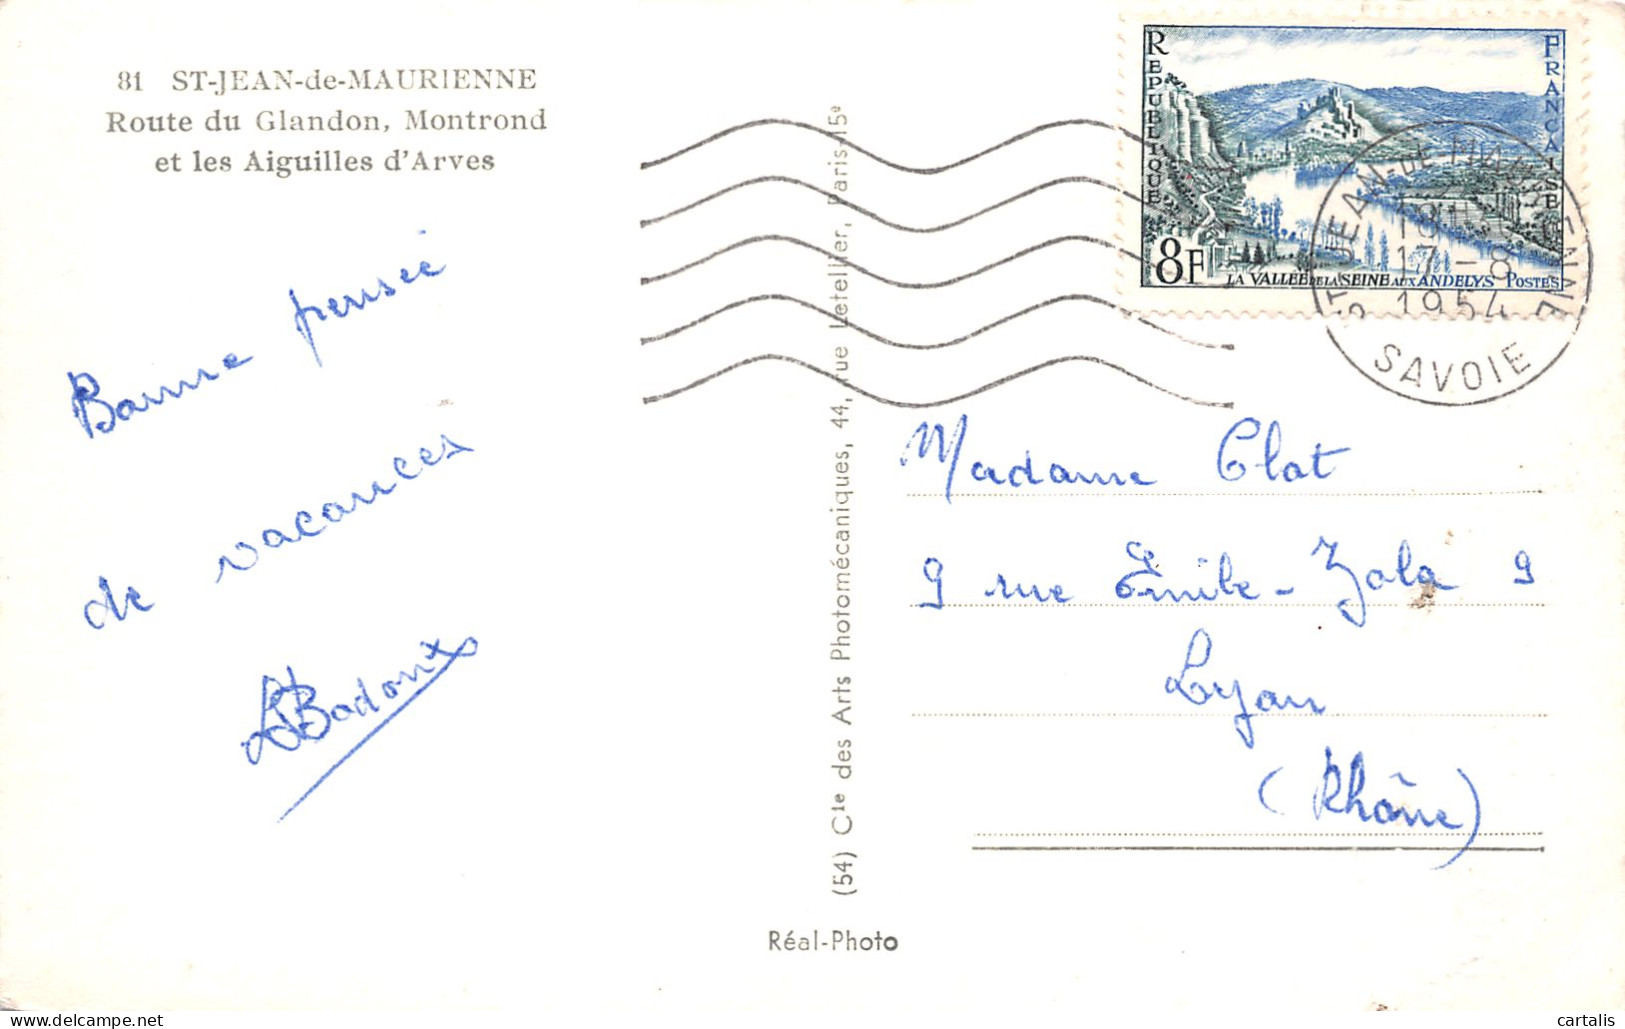 81 ST-JEAN-de-MAURIENNE
Route du Glandon, Montrond
et les Aiguilles d'Arves
Bonne pensée
de vacances
RÉPUBLIQUE
FRANÇAISE
8F
LA VALLÉE DE LA SEINE AUX ANDELYS POSTES
ST JEAN-DE-MAURIENNE
17-8
1954
SAVOIE
(54) Cie des Arts Photomécaniques, 44, rue Letellier, Paris-15e
Réal-Photo
Madame Clat
9 rue Émile-Zola 9
Lyon
(Rhône)
cartalis